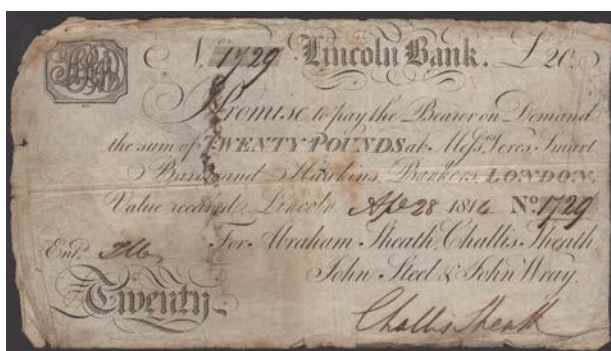 No. 1729 Lincoln Bank. £20
I Promise to pay the Bearer on Demand
the sum of TWENTY POUNDS at Messrs. Veres, Smart
Baron and Hawkins, Bankers LONDON.
Value received, Lincoln 28 1816 No. 1729
For Abraham Sheath, Challis Sheath
Entd.
John Steel & John Wray.
Twenty
Challis Sheath